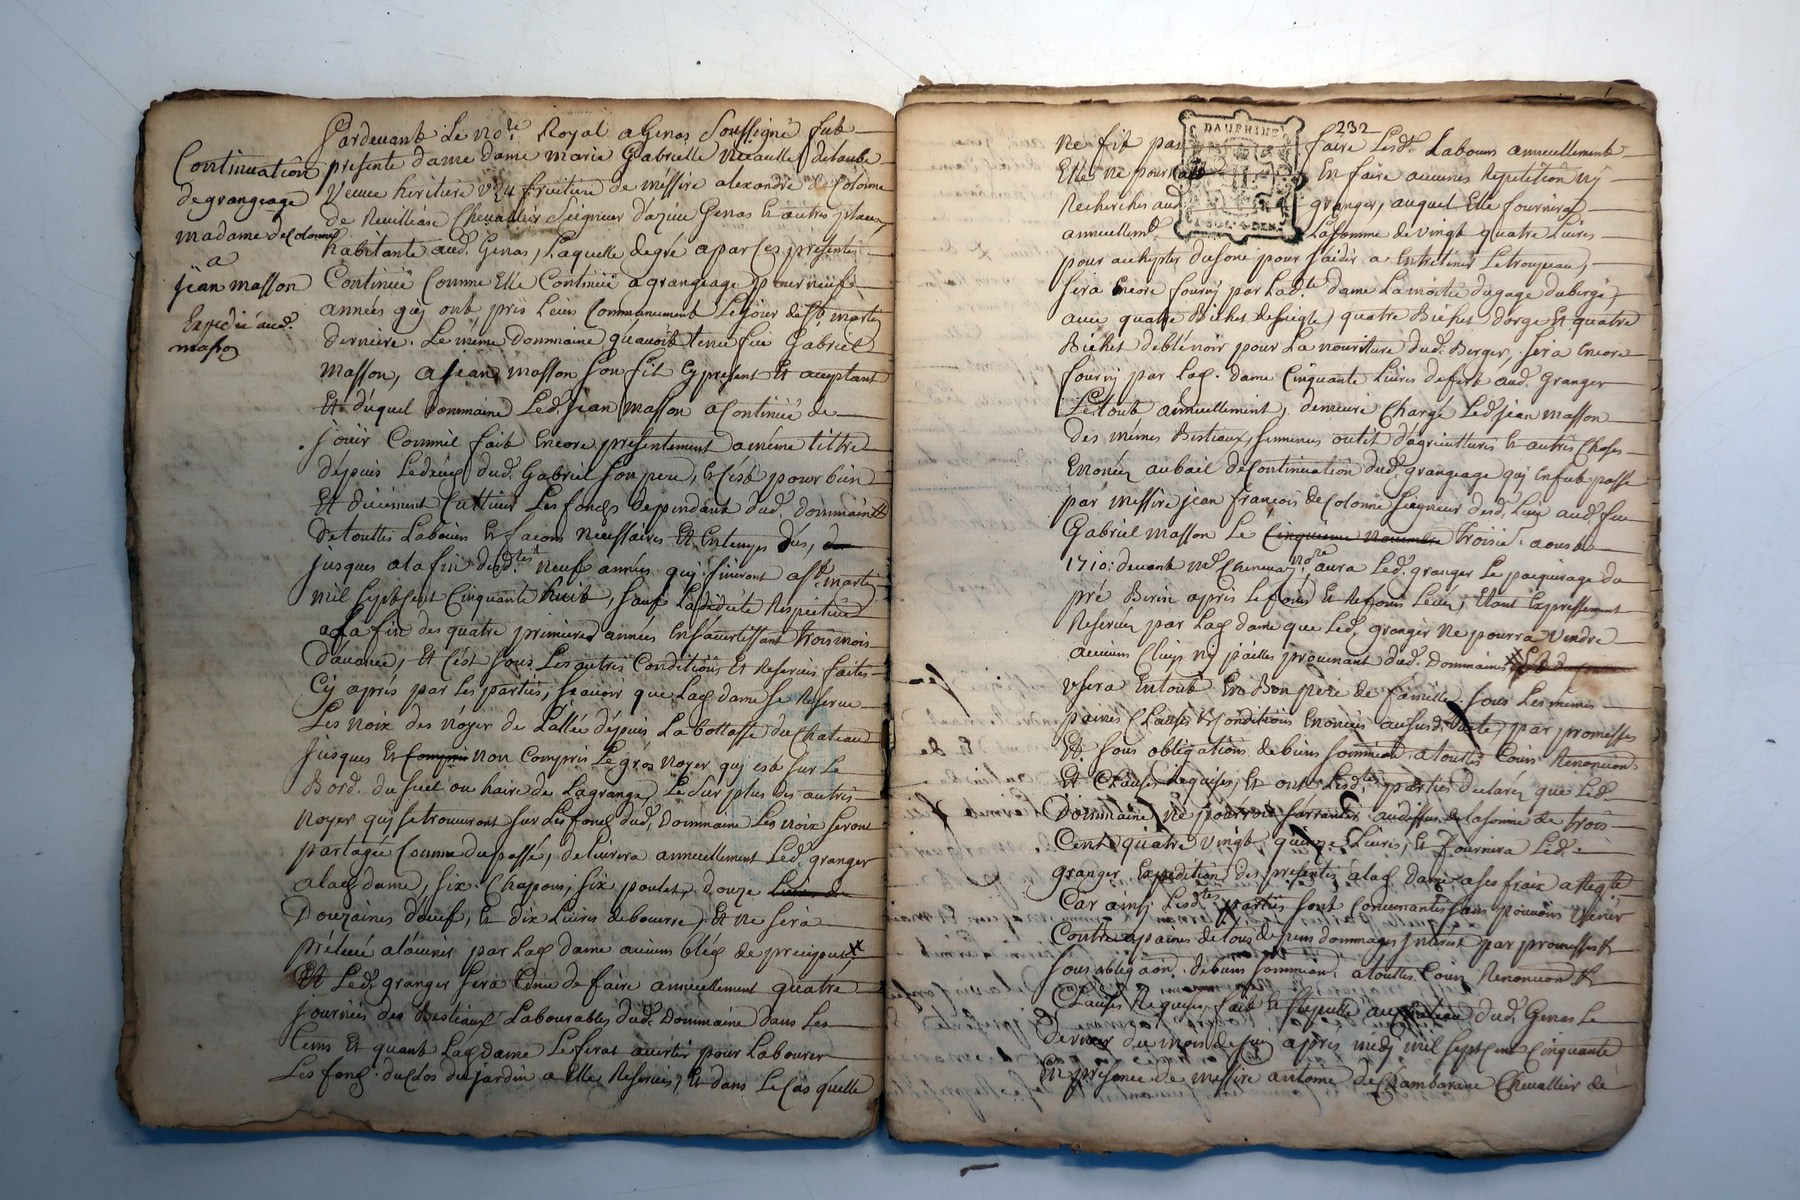 Continuation
de grangeage
madame de Colonne
a
jean masson
Expedié aud.
masson
Pardevant Le No.re Royal a Genas Soussigné fut
presente dame dame marie Gabrielle de
Veuve heritiere de messire alexandre de Colonne
de Chevallier Seigneur d'azieu Genas et autres places
habitante aud. Genas, Laquelle de gré a par ces presentes
Continüé Comme Elle Continüe a grangeage pour neuf
années qui ont pris Leurs Commencement Le jour de St martin
derniere. Le même dommaine qu'avoit tenu feu Gabriel
masson, a jean masson son fil Cy present Et aceptant
Et duquel dommaine Led. jean masson a Continüé de
jouir Comm'il fait Encore presentement a même tittre
depuis Le dud. Gabriel son pere, et c'est pour bien
Et düement Cultiver Les fonds dependant dud. dommaine
de touttes Labours et façons necessaires Et En temps dus,
jusques a la fin desd.tes neuf années qui finiront a St martin
mil sept cent Cinquante huit, sauf La respective
a La fin des quatre premieres années En s'avertissant trois mois
d'avance, Et C'est sous Les autres Conditions Et Reserves faites
Cy après par Les parties, scavoir que Lad. dame se Reserve
Les noix des noyer de L'allée depuis La bottasse du Chateau
jusques Et compris non Compris Le gros noyer qui est sur Le
Bord du suel ou haire de La grange, Le surplus des autres
noyer qui se trouveront sur Les fonds dud. Dommaine Les noix seront
partagée Comme du passé, de Livrera annuellement Led. granger
a lad. dame, six Chapons, six poulet, douze
Douzaines d'oeuf, et dix Livres de beurre, Et ne sera
prélevé a l'avenir par Lad. dame aucuns bled de preciput x
Et Led. granger sera tenu de faire annuellement quatre
journées des Bestiaux Labourables dud. Dommaine dans Les
tems Et quant Lad. dame Le ferat avertir pour Labourer
Les fonds du Clos du jardin a Elle Reservés, Et dans Le Cas qu'elle
232
DAUPHINE
ne fit pas faire Lesd. Labours annuellement
Elle ne pourra En faire aucunes Repetition ny
Recherches aud. granger, auquel Elle fournira
annuellemt. La somme de vingt quatre Livres
pour achepter du foin pour s'aider a Entretenir Le troupeau,
sera Encore fourni par Lad.te dame La moitié du gage du berger
avec quatre Bichet de seigle, quatre Bichet d'orge Et quatre
Bichet de blé noir pour La nouriture dud. Berger, sera Encore
fourny par Lad. dame Cinquante Livres de fert aud. Granger
Le tout annuellement, demeure Chargé Led. jean masson
des mêmes Bestiaux, semences outil d'agricultures et autres Choses
Enoncées au bail de Continuation dud. grangeage qui En fut passé
par messire jean françois de Colonne Seigneur desd. Lieu aud. feu
Gabriel masson Le Cinquieme novembre troisie. aoust
1710: devant Me. No.re aura Led. granger Le paquerage du
pré après Le foin Et Refoin Levés, Etant Expressement
Reservés par Lad. dame que Led. granger ne pourra vendre
aucuns ny pailles provenant dud. Dommaine
usera En tout En Bon pere de famille. sous Les mêmes
paines Clauses Et Conditions Enoncées au susd. par promesses
Et sous obligations de biens soumission a touttes Cours Renonciaons
Et Clauses Requises, Et ont Lesd.tes parties declarés que Led.
dommaine ne pourroit s'arranter audessus de la somme de trois
Cent quatre vingt quinze Livres, Et fournira Led.
granger Expedition des presentes a lad. dame a ses fraix
Car ainsi Lesd.tes parties sont Convenantes sans pouvoir venir
Contre a paines de tous depens dommages interest par promesses et
sous obligaon. de biens soumission. a touttes Cours Renonciaon et
Clauses Requises, fait et stipullé au Chateau dud. Genas Le
dernier du mois de après midy mil sept cent Cinquante
En presence de messire antoine de Chambaran Chevallier de